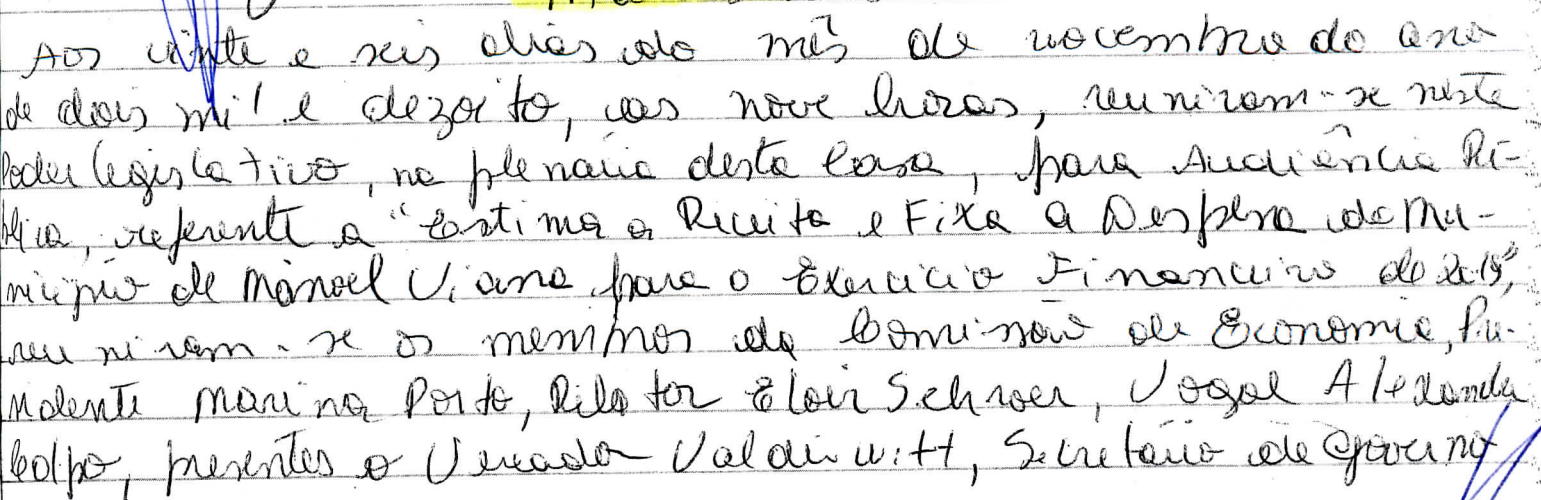 Aos vinte e seis dias do mês de novembro do ano
de dois mil e dezoito, as nove horas, reuniram-se neste
Poder legislativo, na plenaria desta Casa, para Audiência Pú-
blica, referente a "Estima a Receita e Fixa a Despesa do Mu-
nicipio de Manoel Viana para o Exercicio Financeiro de 2019",
reuniram-se os membros da Comissão de Economia, Pre-
sidente Marina Porto, Relator Eloir Schroer, Vogal Alexandre
Colpo, presentes o Vereador Valdir Witt, Secretario de Governo